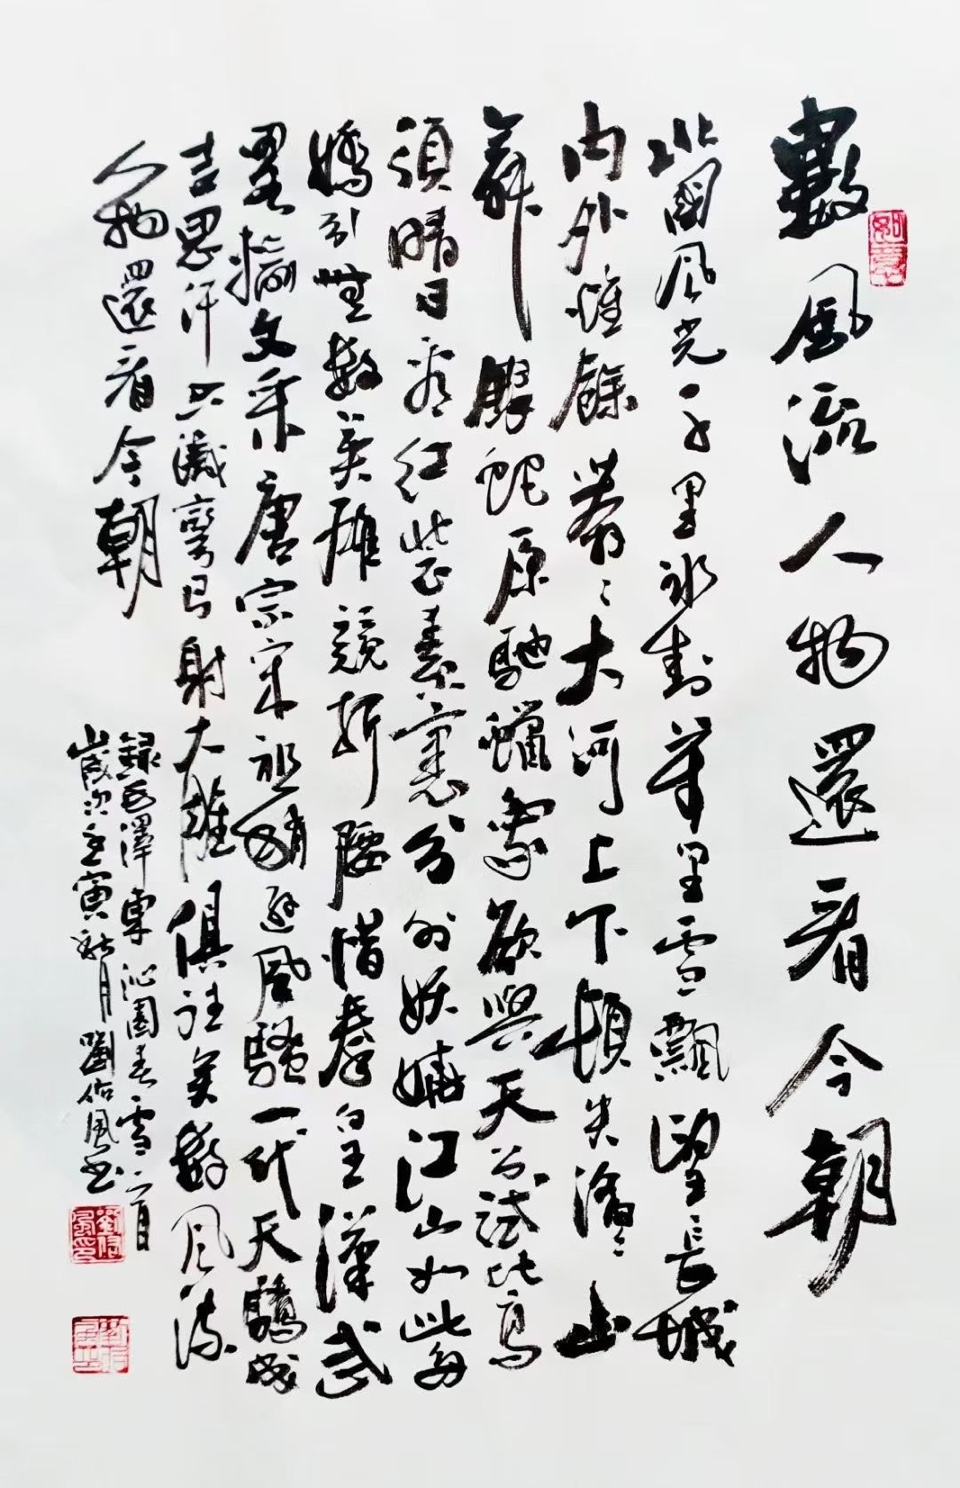 數風流人物還看今朝
如意
北國風光千里冰封萬里雪飄望長城
內外惟餘莽〻大河上下頓失滔〻山
舞銀蛇原馳蠟象欲與天公試比高
須晴日看紅裝素裹分外妖嬈江山如此多
嬌引無數英雄競折腰惜秦皇漢武
略輸文采唐宗宋祖稍遜風騷一代天驕成
吉思汗只識彎弓射大雕俱往矣數風流
人物還看今朝
錄毛澤東沁園春雪一首
歲次壬寅秋月劉佑風書